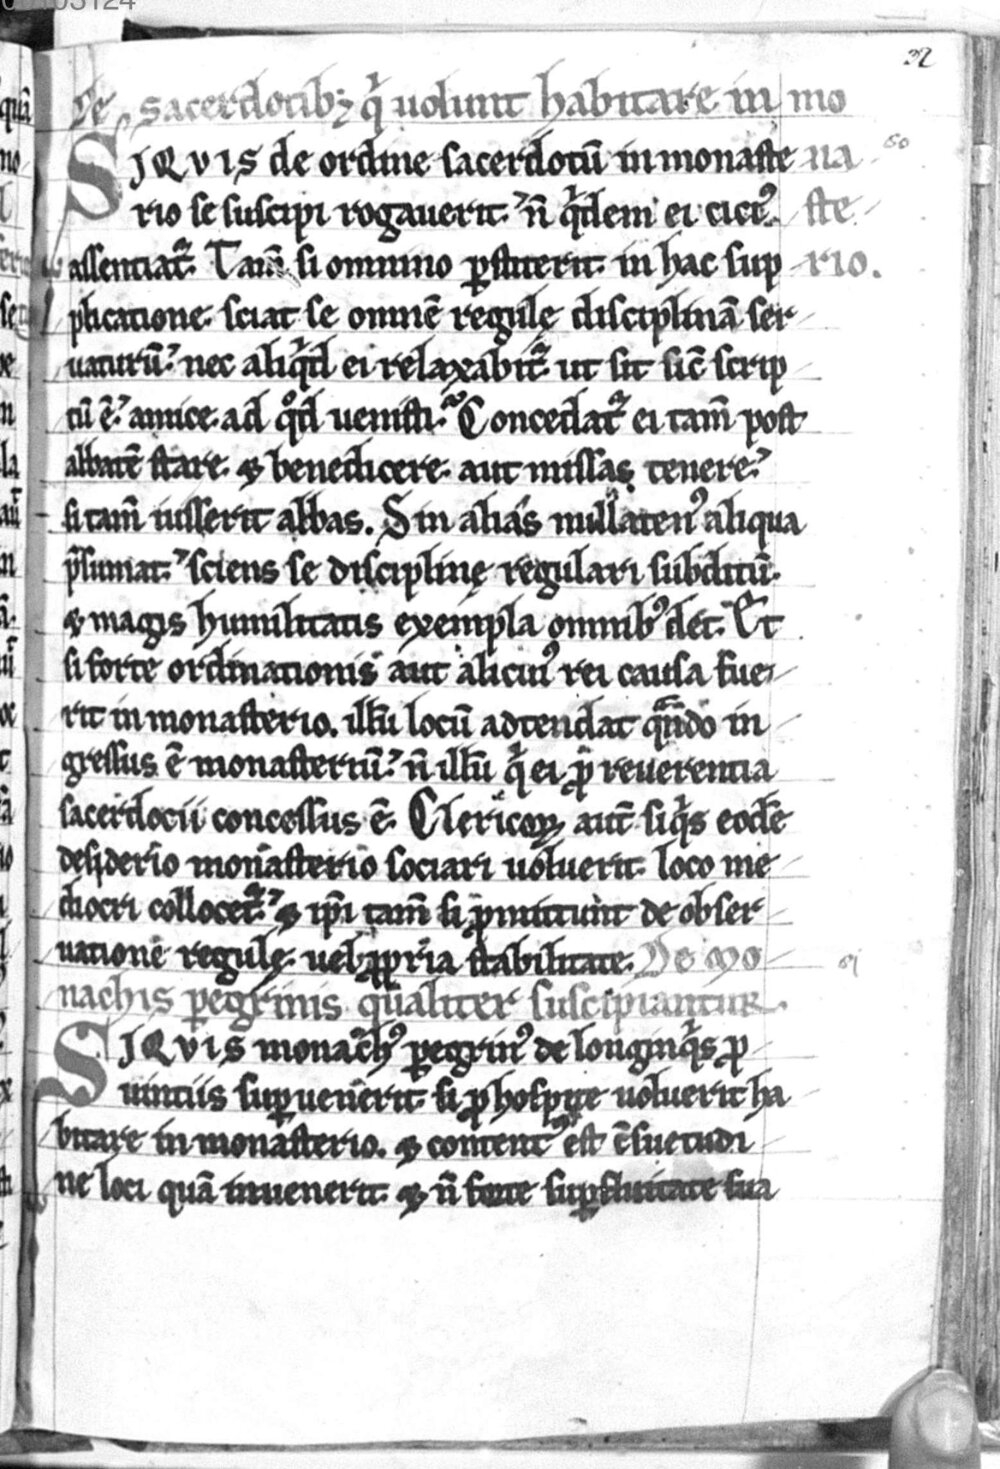 32
De sacerdotib; q̇ uolunt habitare in mo
SI QVIS de ordine sacerdotū in monaste na
60
rio se suscipi rogauerit. n̄ q̇dem ei citiꝰ ste
assentiat᷑. Tam̄ si omnino ꝑstiterit in hac sup rio.
plicatione. sciat se omnē regulę disciplinā ser
uaturū. nec aliq̇d ei relaxabit᷑ ut sit sic̄ scrip
tū ē. amice ad qͦd uenisti. Concedat᷑ ei tam̄ post
abbatē stare. & benedicere. aut missas tenere.
si tam̄ iusserit abbas. Sin alias nullatenꝰ aliqua
p̄sumat. sciens se disciplinę regulari subditū.
& magis humilitatis exempla omnibꝰ det. Et
si forte ordinationis aut alicuiꝰ rei causa fue
rit in monasterio. illū locū adtendat qͣndo in
gressus ē monasteriū. n̄ illū q̇ ei ꝓ reuerentia
sacerdocii concessus ē. Clericoꝝ aut̄ siq̇s eodē
desiderio monasterio sociari uoluerit. loco me
diocri collocet᷑. & ip̄i tam̄ si ꝓmittunt de obser
uatione regulę. uel ꝓpria stabilitate. De mo
61
nachis peregrinis qualiter suscipiantur.
SI QVIS monachꝰ ꝑegrinꝰ de longinq̇s ꝓ
uintiis suꝑuenerit. si ꝓ hospite uoluerit ha
bitare in monasterio. & contentꝰ est c̄suetudi
ne loci quā inuenerit. & n̄ forte suꝑfluitate sua